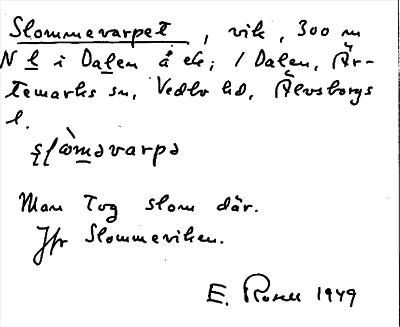 Slommevarpet, vik, 300 m
N l i Dalen å ek; i Dalen, Är-
temarks sn, Vedbo hd, Älvsborgs
l.
Man tog slom där.
Jfr Slommeviken.
E. Rosell 1949